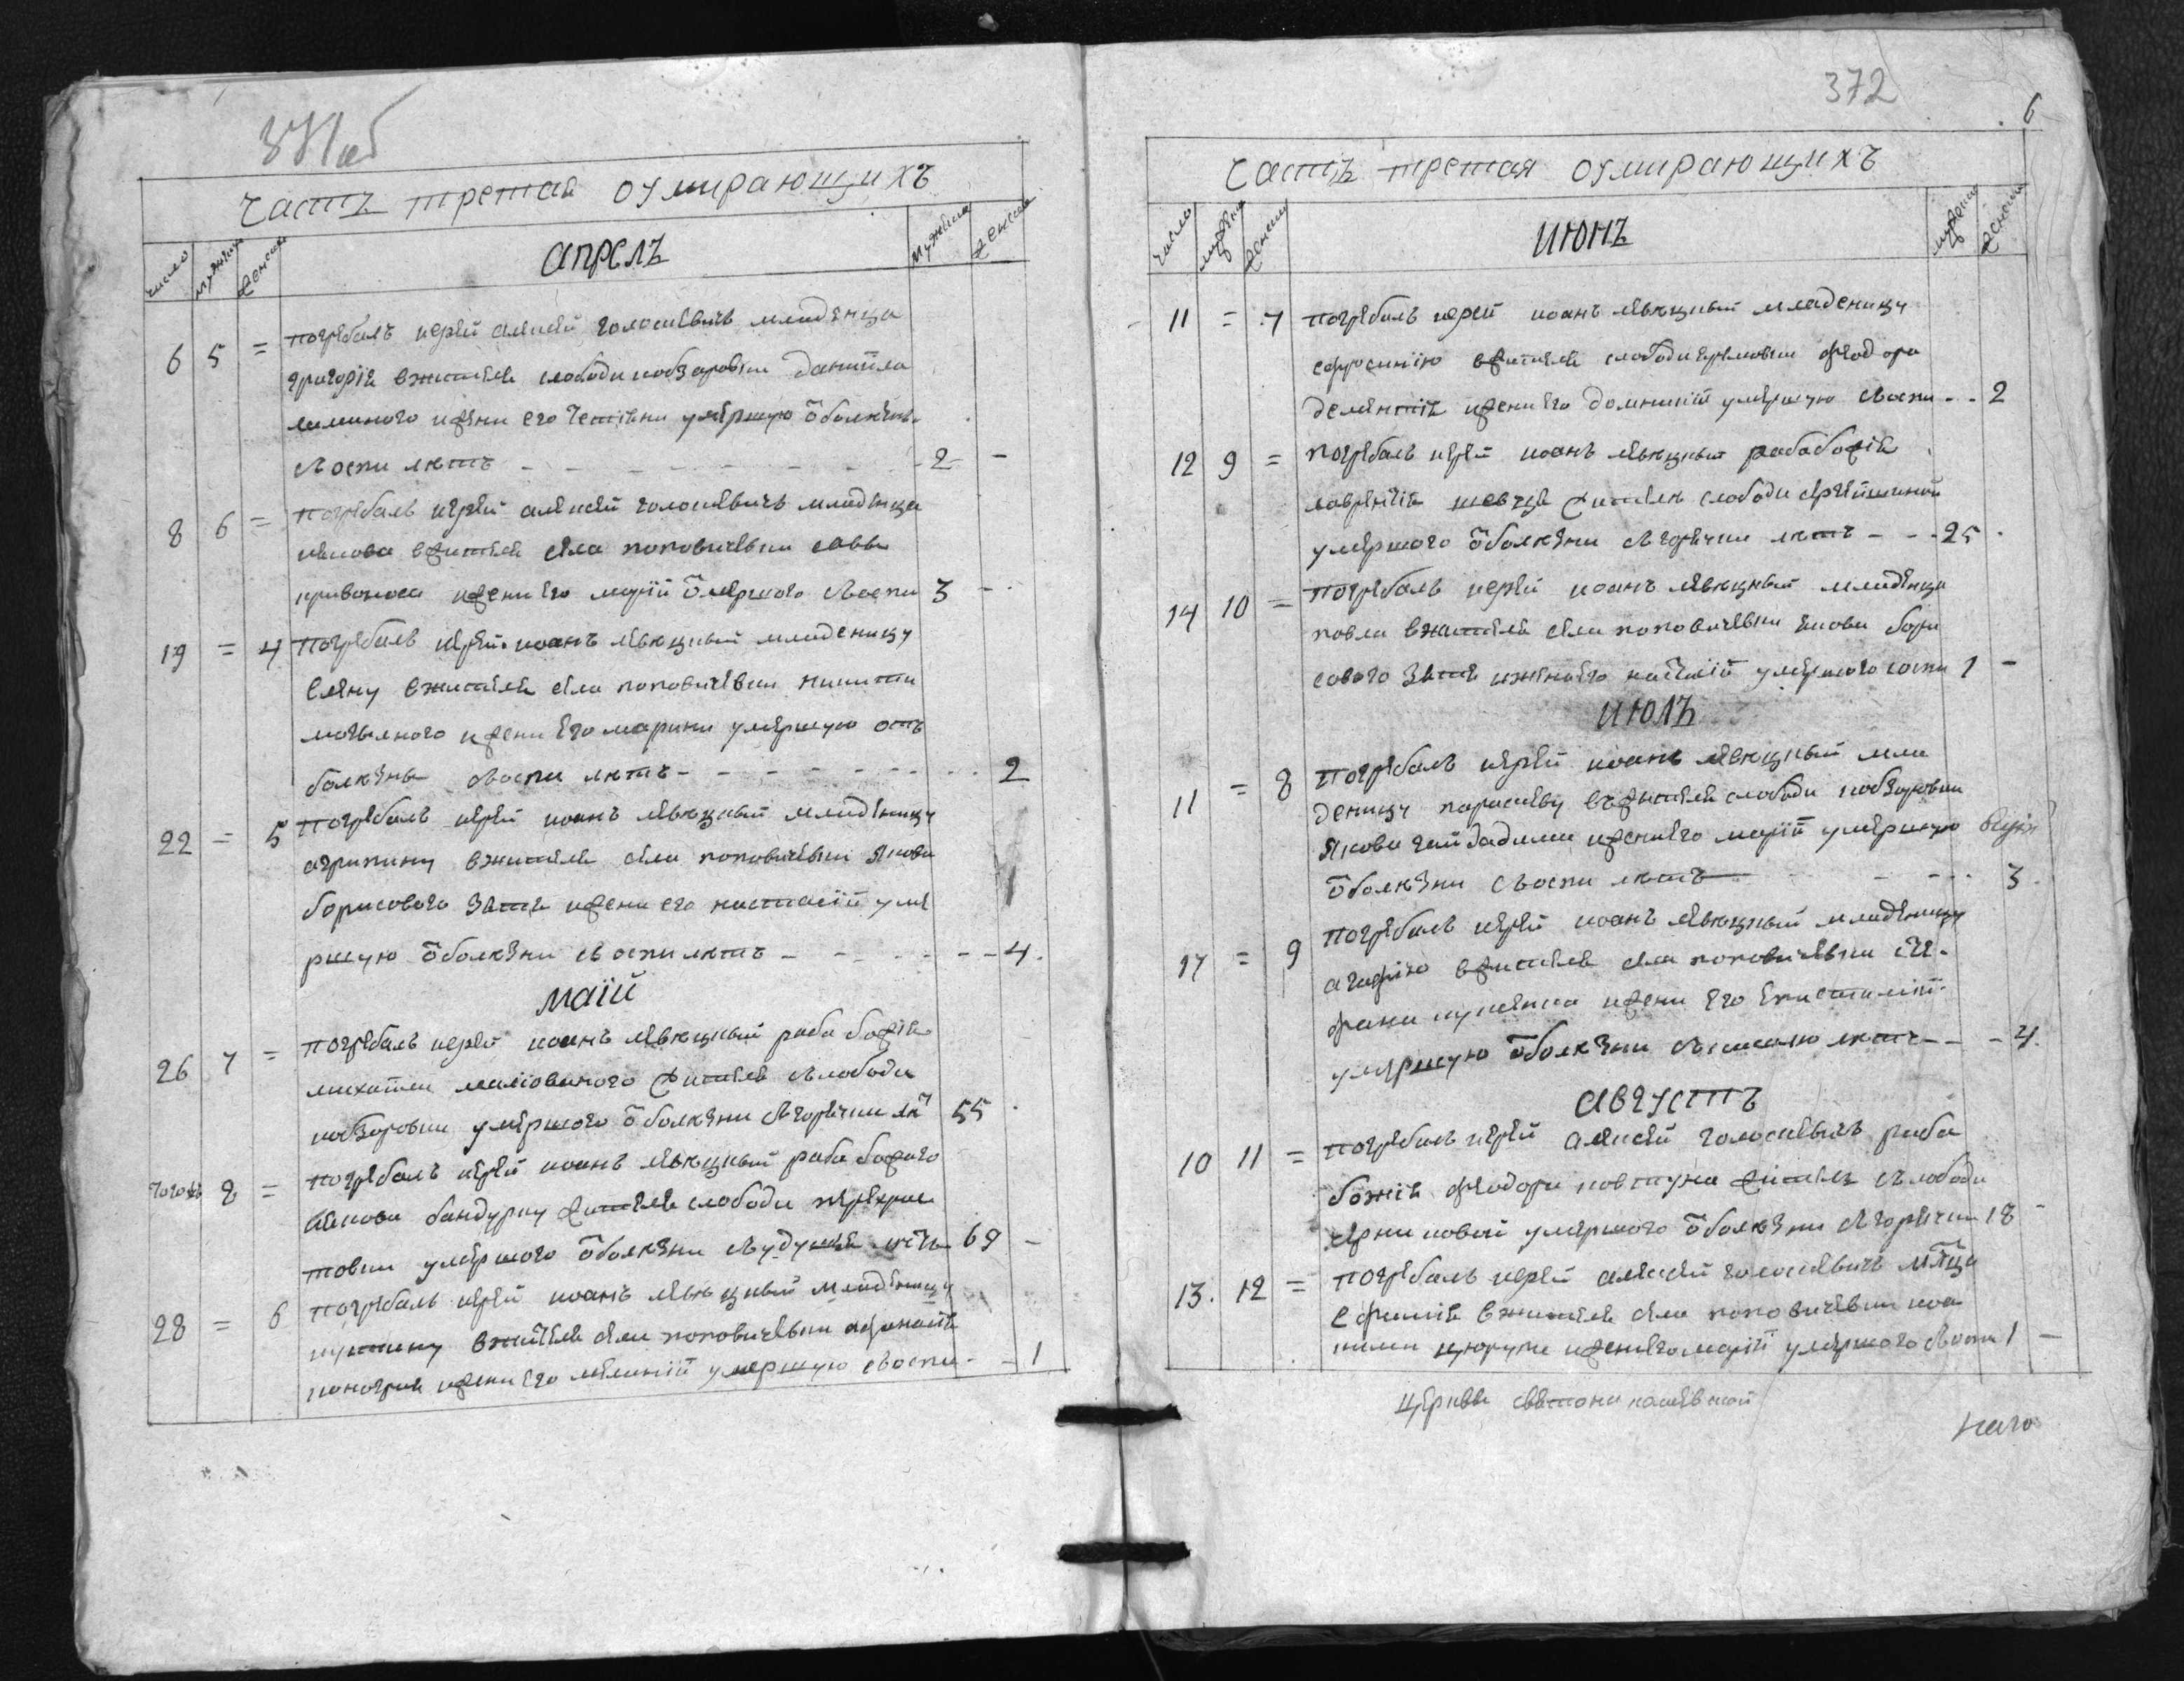 371об
Частъ третая оумирающихъ
число мужеска женска апрелъ мужеска женска
6 5 = погребалъ иерей алексей голосиевичъ младенца
григория вжителя слободи кобзаровки даниила
и жени его умершую ѿ болезни
съоспи летъ - - - 2 -
8 6 = погребалъ иерей алексей голосиевичъ младенца
иякова вжителя села поповичевки саввы
кривоноса ижени его марїй ѿ мершого съоспи 3 -
19 = 4 погребалъ иерей иоанъ левицкий младеницу
елену вжителя села поповичевки никити
могилного ижени его марини умершую отъ
болезны съоспи летъ - - - 2
22 = 5 погребалъ иерей иоанъ левицкий младеницу
агрипину вжителя села поповичевки якова
борисового зятя ижени его настасїй уме
ршую ѿ болезни съ оспи летъ - - - 4
маїй
26 7 = погребалъ иерей иоанъ левицкий раба божія
михаила жителя слободи
кобзоровки умершого ѿ болезни съгоречки лет 55
тогожъ 8 = погребалъ иерей иоанъ левицкий раба божого
якова бандурку жителя слободи перехрис
товки умершого ѿ болезни съудушя летъ 69 -
28 = 6 погребалъ иерей иоанъ левицкий младеницу
вжителя села поповичевки афанасїя
ижени его меланїй умершую съоспи - - 1
372
6
Частъ третая оумирающихъ
число мужеска женска июнъ мужеска женска
11 = 7 погребалъ иерей иоанъ левицкий младеницу
ефросинїю вжителя слободи феодора
ижени его домникїй умершую съоспи - - 2
12 9 = погребалъ иерей иоанъ левицкий раба божїя
лаврентїя шевця жителя слободи
умершого ѿ болезни съгоречки летъ - - 25
14 10 = погребалъ иерей иоанъ левицкий младенца
павла вжителя села поповичевки якова бори
сового зятя ижени его настасїй умершого соспи 1 -
июлъ
11 = 8 погребалъ иерей иоанъ левицкий мла
деницу параскеву въжителя слободи кобзаровки
якова ижени его марїй умершую
ѿ болезни съоспи летъ - - - 3
17 = 9 погребалъ иерей иоанъ левицкий младеницу
агафїю вжителя села поповичевки сте
фана ижени его
умершую ѿ болезни съ летъ - - - 4
августъ
10 11 = погребалъ иерей алексей голосиевичъ раба
божїя феодора ковтуна жителя слободи
умершого ѿ болезни съгоречки 18 -
13 12 = погребалъ иерей алексей голосиевичъ мл҃нца
ефимїя вжителя села поповичевки иоа
кима цюрупи ижени его марїй умершого съоспи 1 -
церкви святониколаевской